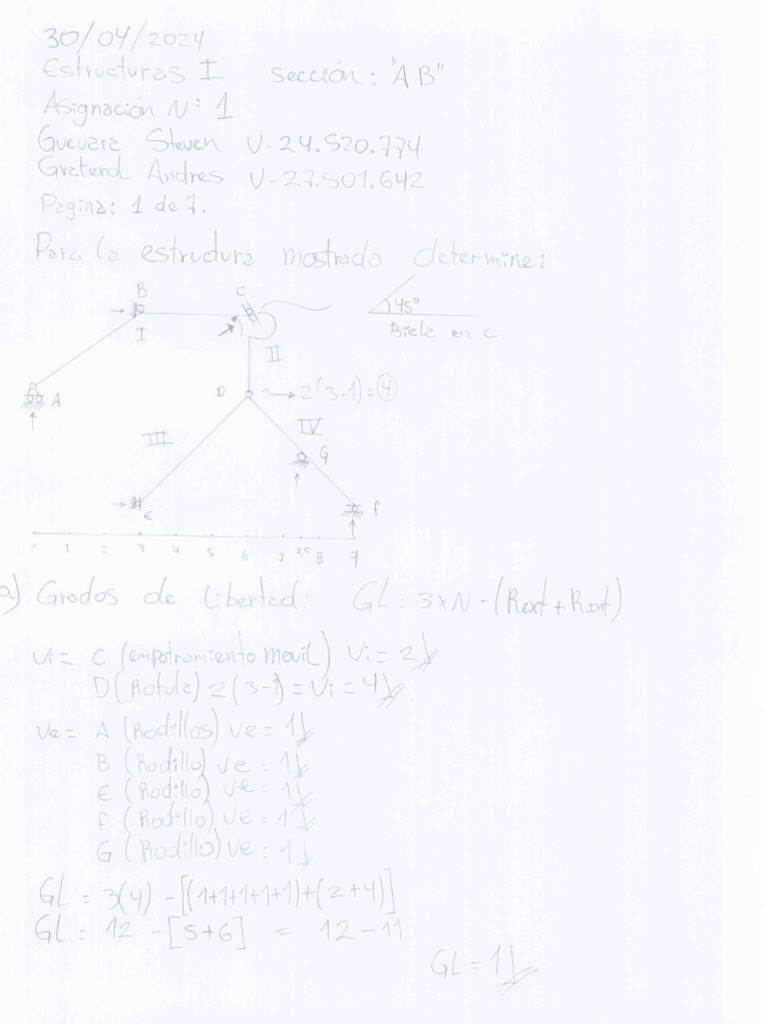 30/04/2024
Estructuras I sección: "AB"
Asignación N°: 1
Guevara Steven V-24.520.774
Graterol Andres V-27.501.642
Pagina: 1 de 7.
Para la estructura mostrada determine:
B C
45°
I Biela en C
II
D 2(3-1)=4
A
IV
III G
E F
0 1 2 3 4 5 6 7 7,5 8 9
a) Grados de libertad: GL: 3xN-(Rext+Rint)
Vi= C (empotramiento movil) Vi=2
D (Rotula) 2(3-1)=Vi=4
Ve= A (Rodillos) Ve=1
B (Rodillo) Ve=1
E (Rodillo) Ve=1
F (Rodillo) Ve=1
G (Rodillo) Ve=1
GL = 3(4) - [(1+1+1+1+1)+(2+4)]
GL = 12 - [5+6] = 12-11
GL=1